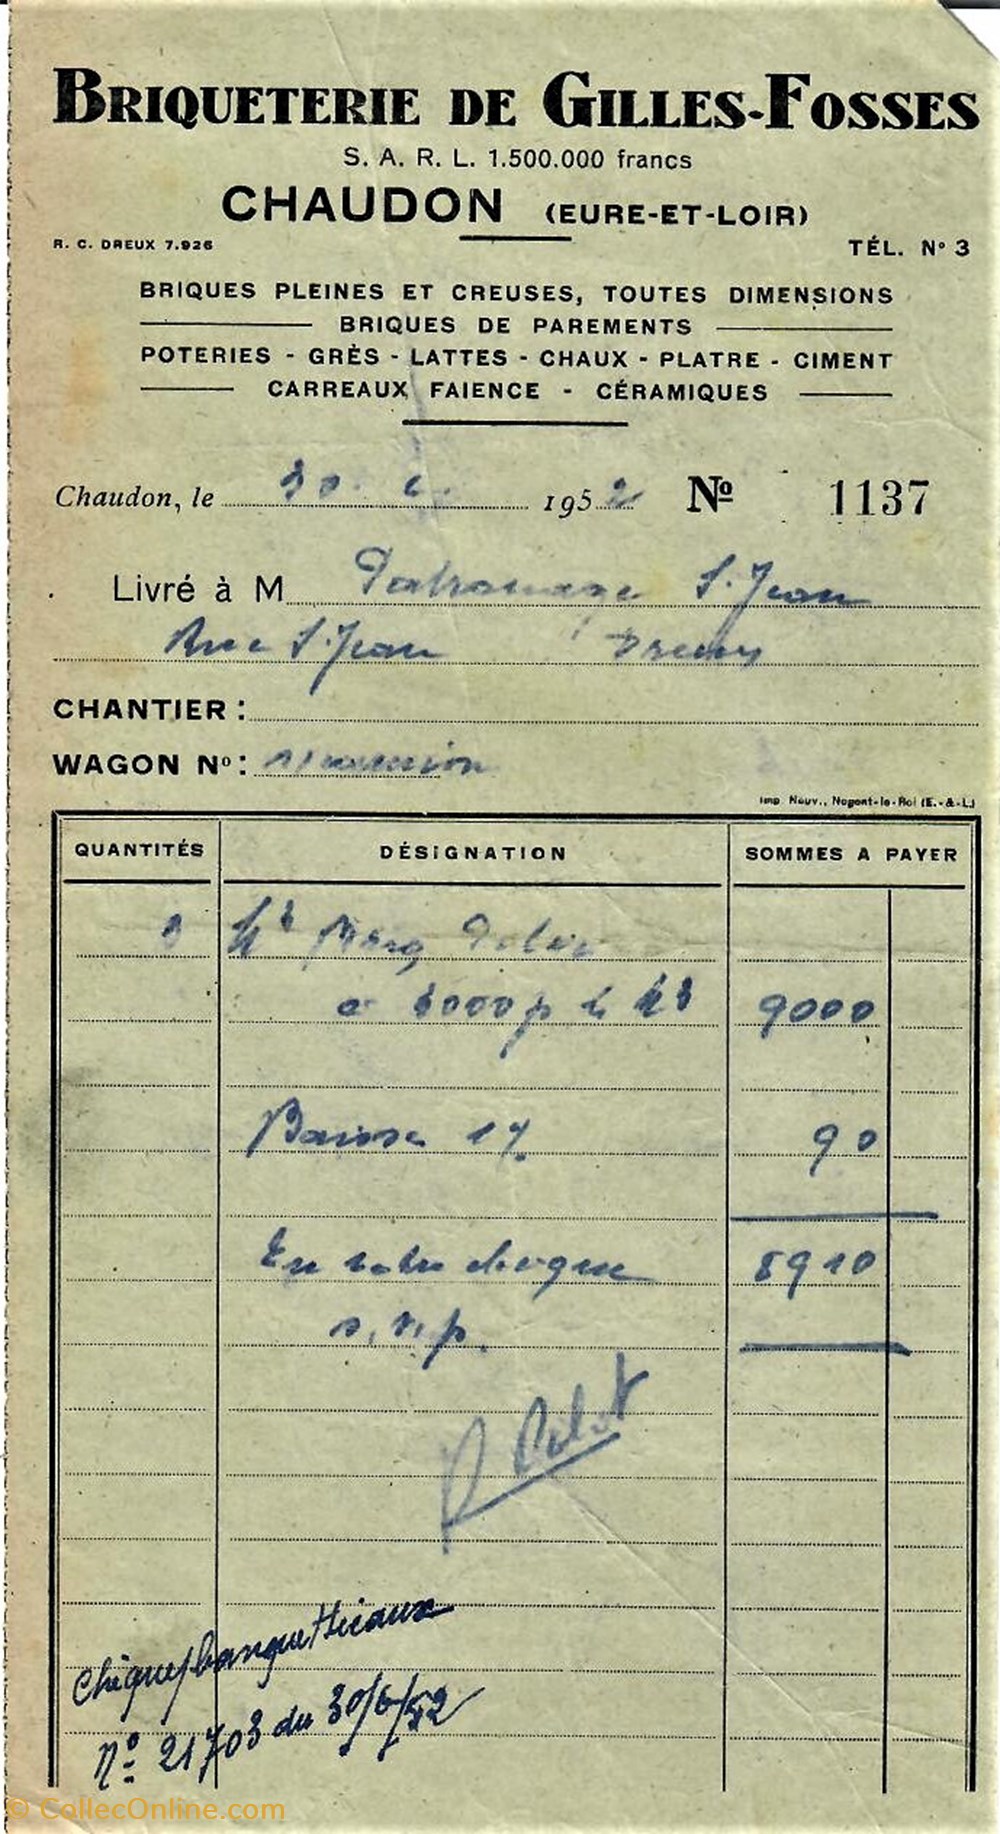 BRIQUETERIE DE GILLES-FOSSES
S. A. R. L. 1.500.000 francs
CHAUDON (EURE-ET-LOIR)
R. C. DREUX 7.926 TÉL. Nº 3
BRIQUES PLEINES ET CREUSES, TOUTES DIMENSIONS
BRIQUES DE PAREMENTS
POTERIES - GRÈS - LATTES - CHAUX - PLATRE - CIMENT
CARREAUX FAIENCE - CÉRAMIQUES
Chaudon, le 30. 6. 1952 Nº 1137
Livré à M Patronage S. Jean
Rue S. Jean Dreux
CHANTIER :
WAGON Nº :
Imp. Nouv., Nogent-le-Roi (E.-&-L.)
QUANTITÉS DÉSIGNATION SOMMES A PAYER
3 M3
a 3000 le M3 9000
Baisse 1% 90
En votre cheque 8910
s. v. p.
Chèque banque Hécaux
Nº 21703 du 30/6/52
© CollecOnline.com